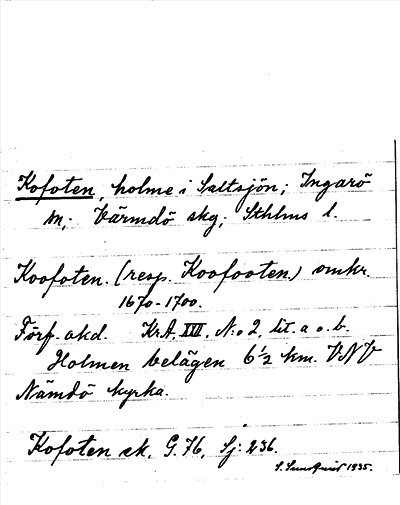 Kofoten, holme i Saltsjön; Ingarö
sn; Värmdö skg; Sthlms l.
Koofoten. (resp. Koofooten.) omkr.
1670-1700.
Förf. okd. Kr.A. XVII, N:o 2, lit. a o. b.
Holmen belägen 6½ km. VNV
Nämdö kyrka.
Kofoten sk. G. 76, Sj: 236.
S. Sundqvist 1935.